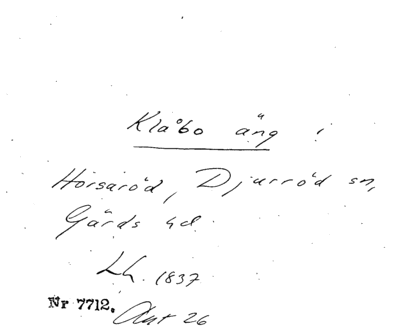 Klåbo äng i
Horsaröd, Djurröd sn,
Gärds hd.
Lh. 1837
Nr 7712.
Akt 26